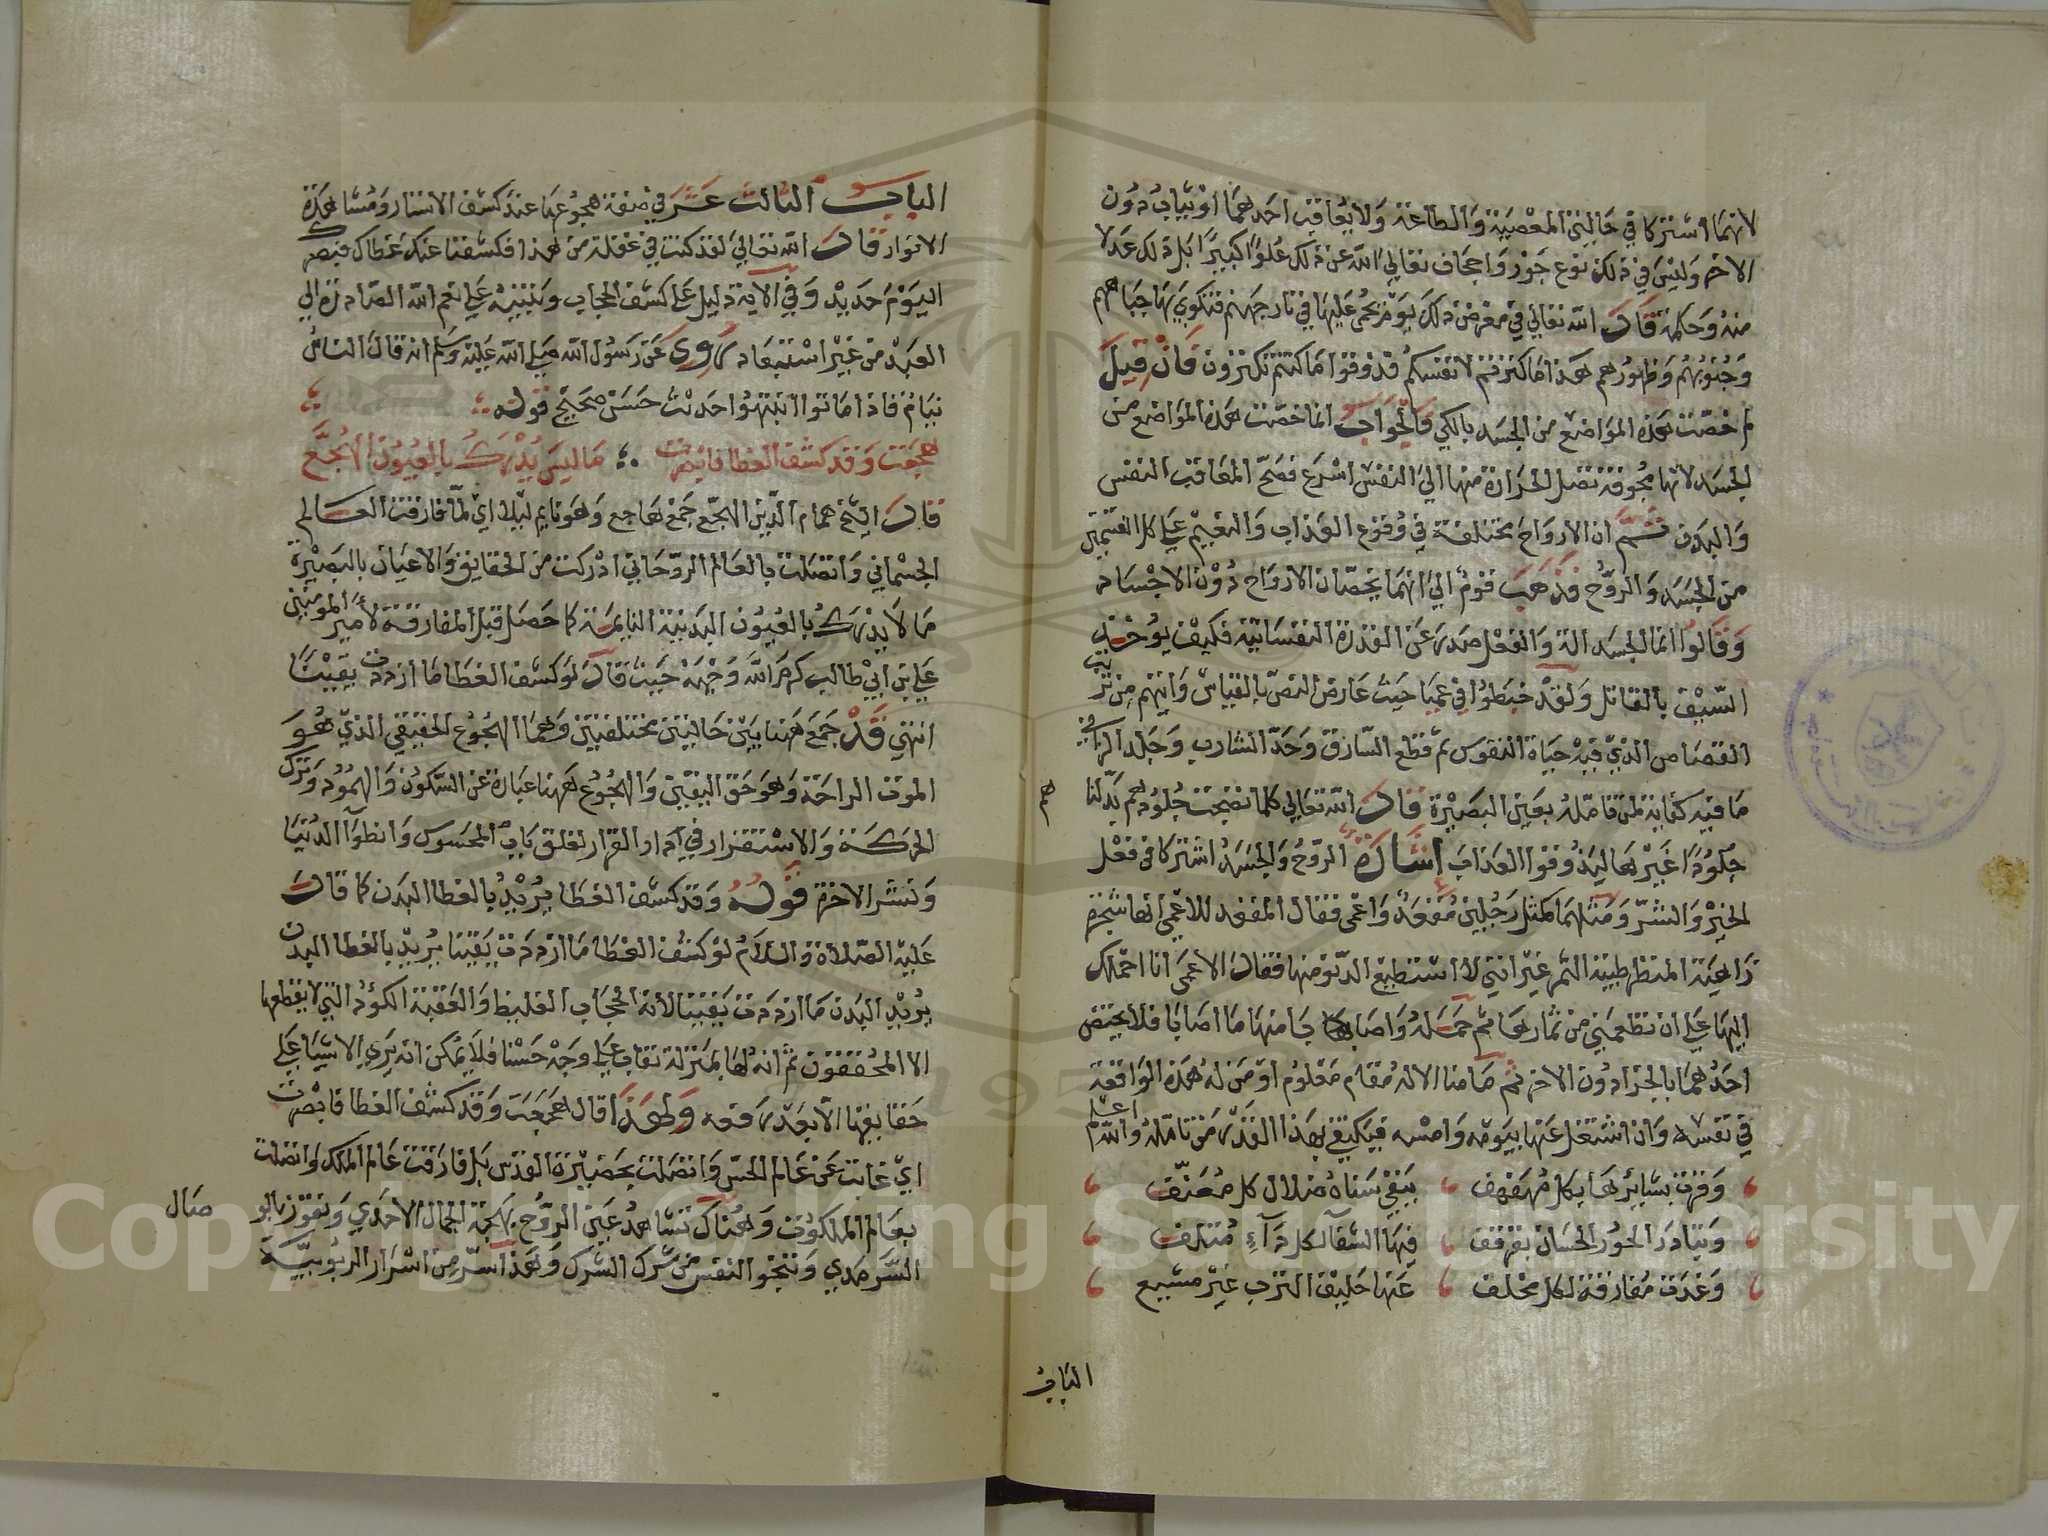 لانهما اشتركا في حالتي المعصية والطاعة ولا يعاقب احدهما او يثاب دون
الاخر وليس في ذلك نوع جور واجحاف تعالى الله عن ذلك علوا كبيرا بل ذلك عدلا
منه وحكمة قال الله تعالى في معرض ذلك يوم يحمى عليها في نار جهنم فتكوى بها جباههم
وجنوبهم وظهورهم هذا ما كنزتم لانفسكم فذوقوا ما كنتم تكنزون فان قيل
لم خصت هذه المواضع من الجسد بالكي فالجواب انما خصت هذه المواضع من
الجسد لانها مجوفة تصل الحرارة منها الى النفس اسرع فصح المعاقب النفس
والبدن ثم ان الارواح مختلفة في وقوع العذاب والنعيم على كلا القسمين
من الجسد والروح فذهب قوم الى انهما يخصان الارواح دون الاجساد
وقالوا انما الجسد الة والفعل صدر عن القدرة النفسانية فكيف يوخذ
السيف بالقاتل ولقد خبطوا في عميا حيث عارض النص بالقياس واينهم من ترتيب
القصاص الذي فيه حياة النفوس ثم قطع السارق وحد الشارب وجلد الزاني
ما فيه كفاية لمن تامله بعين البصيرة قال الله تعالى كلما نضجت جلودهم بدلنا
هم
جلودا غيرها ليذوقوا العذاب اشارة الروح والجسد اشتركا في فعل
الخير والشر ومثلهما كمثل رجلين مقعد واعمى فقال المقعد للاعمى انها شجرة
زاهية المنظر طيبة الثمر غير انني لا استطيع الدنو منها فقال الاعمى انا احملك
اليها على ان تطعمني من ثمارها ثم حمله واصابا منها ما اصابا فلا يختص
احدهما بالجزا دون الاخر ثم ما منا الا له مقام معلوم او من له هذه الواقعة
في نفسه وان اشتغل عنها بيومه وامسه فيكفي بهذا القدر من تامله والله اعلم
وفرت بشايرها بكل مهفهف ينفي سناه ضلال كل معنف
وتبادر الحور الحسان بقرقف فيها الشفآ لكل دآء متلف
وغدت مفارقة لكل مخلف عنها حليف الترب غير مشيع
الباب
الباب الثالث عشر في صفة هجوعها عند كشف الاستار ومشاهدة
الانوار قال الله تعالى لقد كنت في غفلة من هذا فكشفنا عنك غطاك فبصرك
اليوم حديد وفي الاية دليل على كشف الحجاب وتنبيه على نعم الله الصادرة الى
العبد من غير استبعاد روي عن رسول الله صلى الله عليه وسلم انه قال الناس
نيام فاذا ماتوا انتبهوا حديث حسن صحيح قوله
هجعت وقد كشف الغطا فابصرت ما ليس يدرك بالعيون الهجع
قال الشيخ همام الدين الهجع جمع هاجع وهو نايم ليلا اي لما فارقت العالم
الجسماني واتصلت بالعالم الروحاني ادركت من الحقايق والاعيان بالبصيرة
ما لا يدرك بالعيون البدنية النايمة كما حصل قبل المفارقة لامير المومنين
علي بن ابي طالب كرم الله وجهه حيث قال لو كشف الغطا ما ازددت يقينا
انتهى قد جمع ههنا بين حالتين مختلفتين وهما الهجوع الحقيقي الذي هو
الموت الراحة وهو حق اليقين والهجوع ههنا عبارة عن السكون والهمود وترك
الحركة والاستقرار في دار القرار لغلق باب المحسوس وانطوآ الدنيا
ونشر الاخرة قوله وقد كشف الغطا يريد بالغطا البدن كما قال
عليه الصلاة والسلام لو كشف الغطا ما ازددت يقينا يريد بالغطا البدن
يريد البدن ما ازددت يقينا لانه الحجاب الغليظ والعقبة الكؤد التي لا يقطعها
الا المحققون ثم انه لها بمنزلة نقاب على وجه حسنا فلا يمكن انه يرى الاشيا على
حقايقها الا بعد رفعه ولهذا قال هجعت وقد كشف الغطا فابصرت
اي غابت عن عالم الحس واتصلت بحضيرة القدس بل فارقت عالم الملك واتصلت
بعالم الملكوت وهناك تشاهد عين الروح بهجة الجمال الاحدي وتفوز بالوصال
السرمدي وتنجو النفس من شرك الشرك وهذا سر من اسرار الربوبية